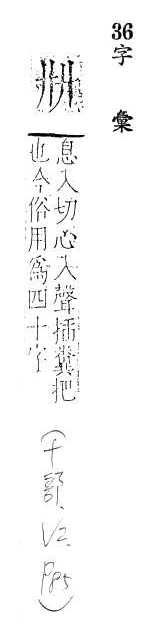 36字彙
卌
息入切心入聲插糞把
也今俗用爲四十字
(十部、V2、P85)